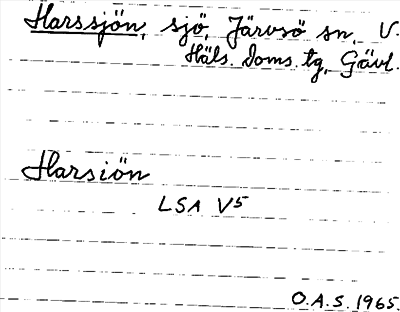 Harssjön, sjö, Järvsö sn, V.
Häls. doms. tg, Gävl.
Harsiön
LSA V5
O.A.S. 1965.